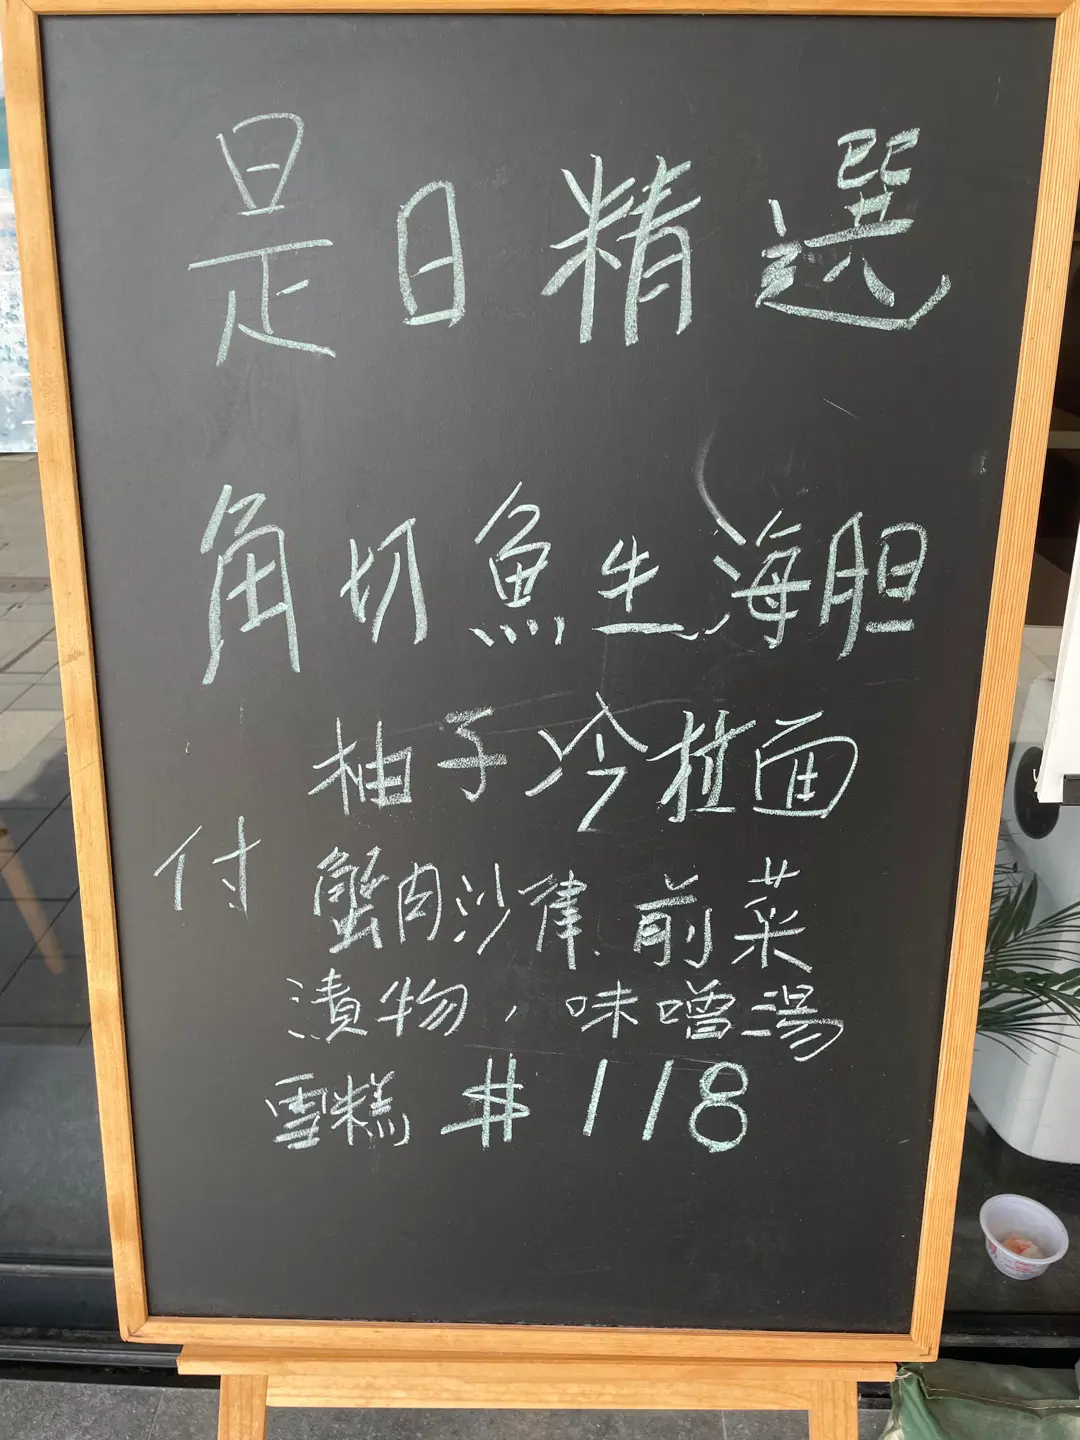 是日精選
角切魚生海胆
柚子冷拉面
付
蟹肉沙律.前菜
漬物,味噌湯
雪糕 $118